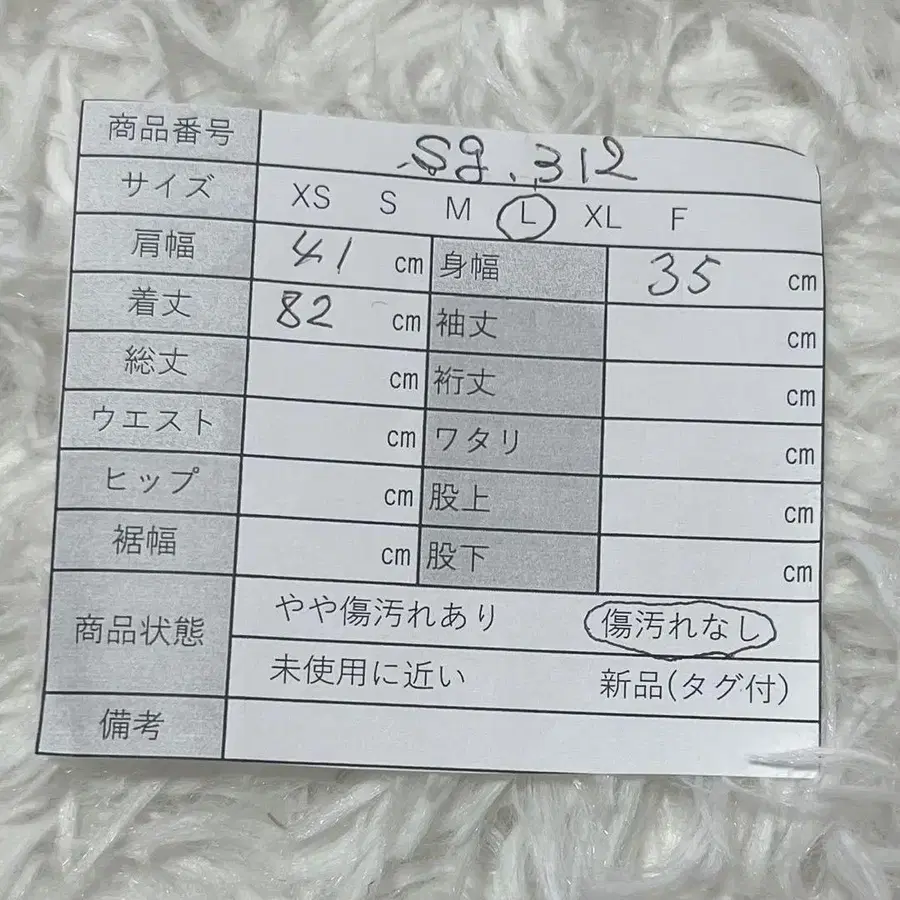 商品番号 sg.312
サイズ XS S M L XL F
肩幅 41 cm 身幅 35 cm
着丈 82 cm 袖丈 cm
総丈 cm 裄丈 cm
ウエスト cm ワタリ cm
ヒップ cm 股上 cm
裾幅 cm 股下 cm
商品状態 やや傷汚れあり 傷汚れなし
未使用に近い 新品(タグ付)
備考